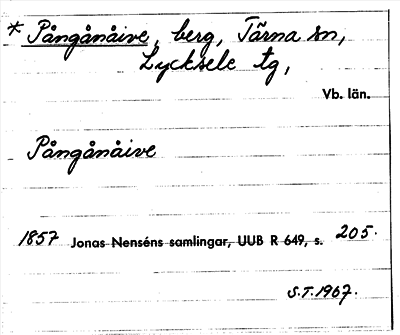 * Pångånåive, berg, Tärna sn,
Lycksele tg,
Vb. län.
Pångånåive
1857 Jonas Nenséns samlingar, UUB R 649, s. 205.
S.T. 1967.